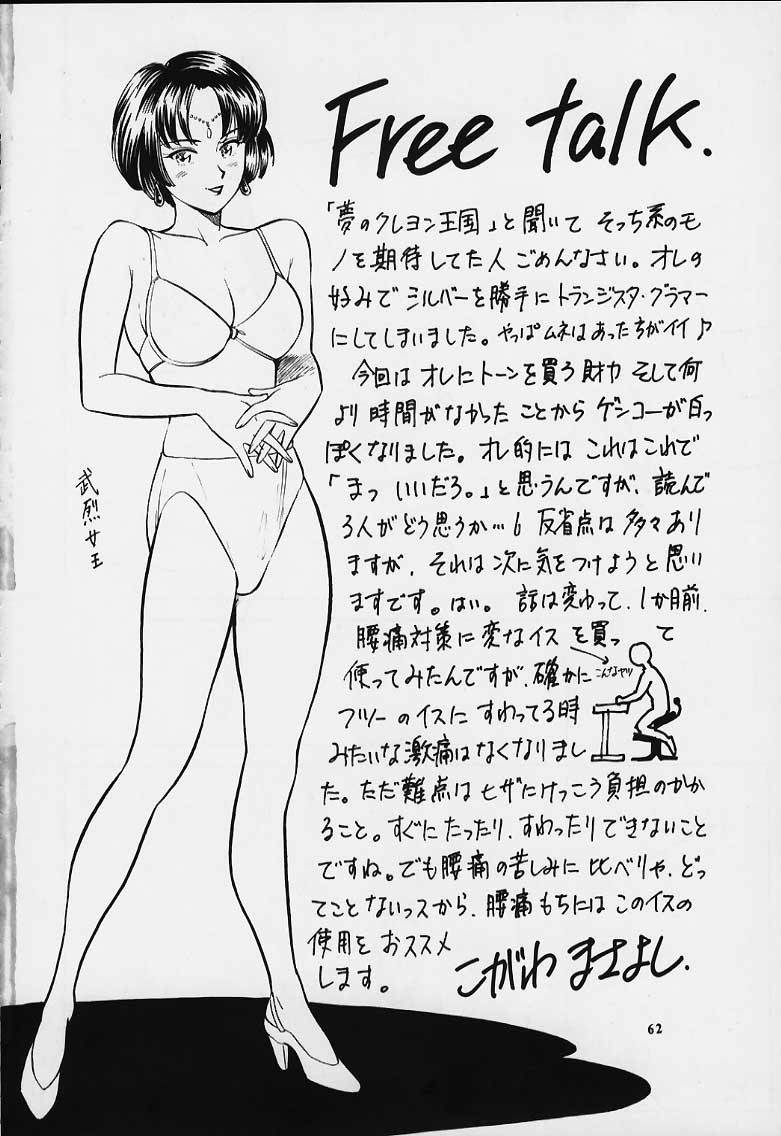 Free talk.
「夢のクレヨン王国」と聞いて そっち系のモ
ノを期待してた人 ごめんなさい。オレの
好みで シルバーを勝手に トランジスタ・グラマー
にしてしまいました。やっぱムネはあった方がイイ♪
今回は オレにトーンを買う財力 そして何
より 時間がなかった ことから ゲンコーが白っ
ぽくなりました。オレ的には これはこれで
「まっ いいだろ。」と思うんですが、読んで
る人がどう思うか…6 反省点は 多々あり
ますが、それは次に気をつけようと思い
ますです。はい。 話は変ゆって、1か月前、
腰痛対策に変なイス を買って
使ってみたんですが、確かに
こんなヤツ
フツーのイスに すわってる時
みたいな激痛はなくなりまし
た。ただ難点はヒザにけっこう負担のかか
ること。すぐにたったり、すわったりできないこと
ですね。でも腰痛の苦しみに 比べりゃ、どっ
てことないっスから、腰痛もちには このイスの
使用を おススメ
します。
こがわ まさよし.
武烈女王
62